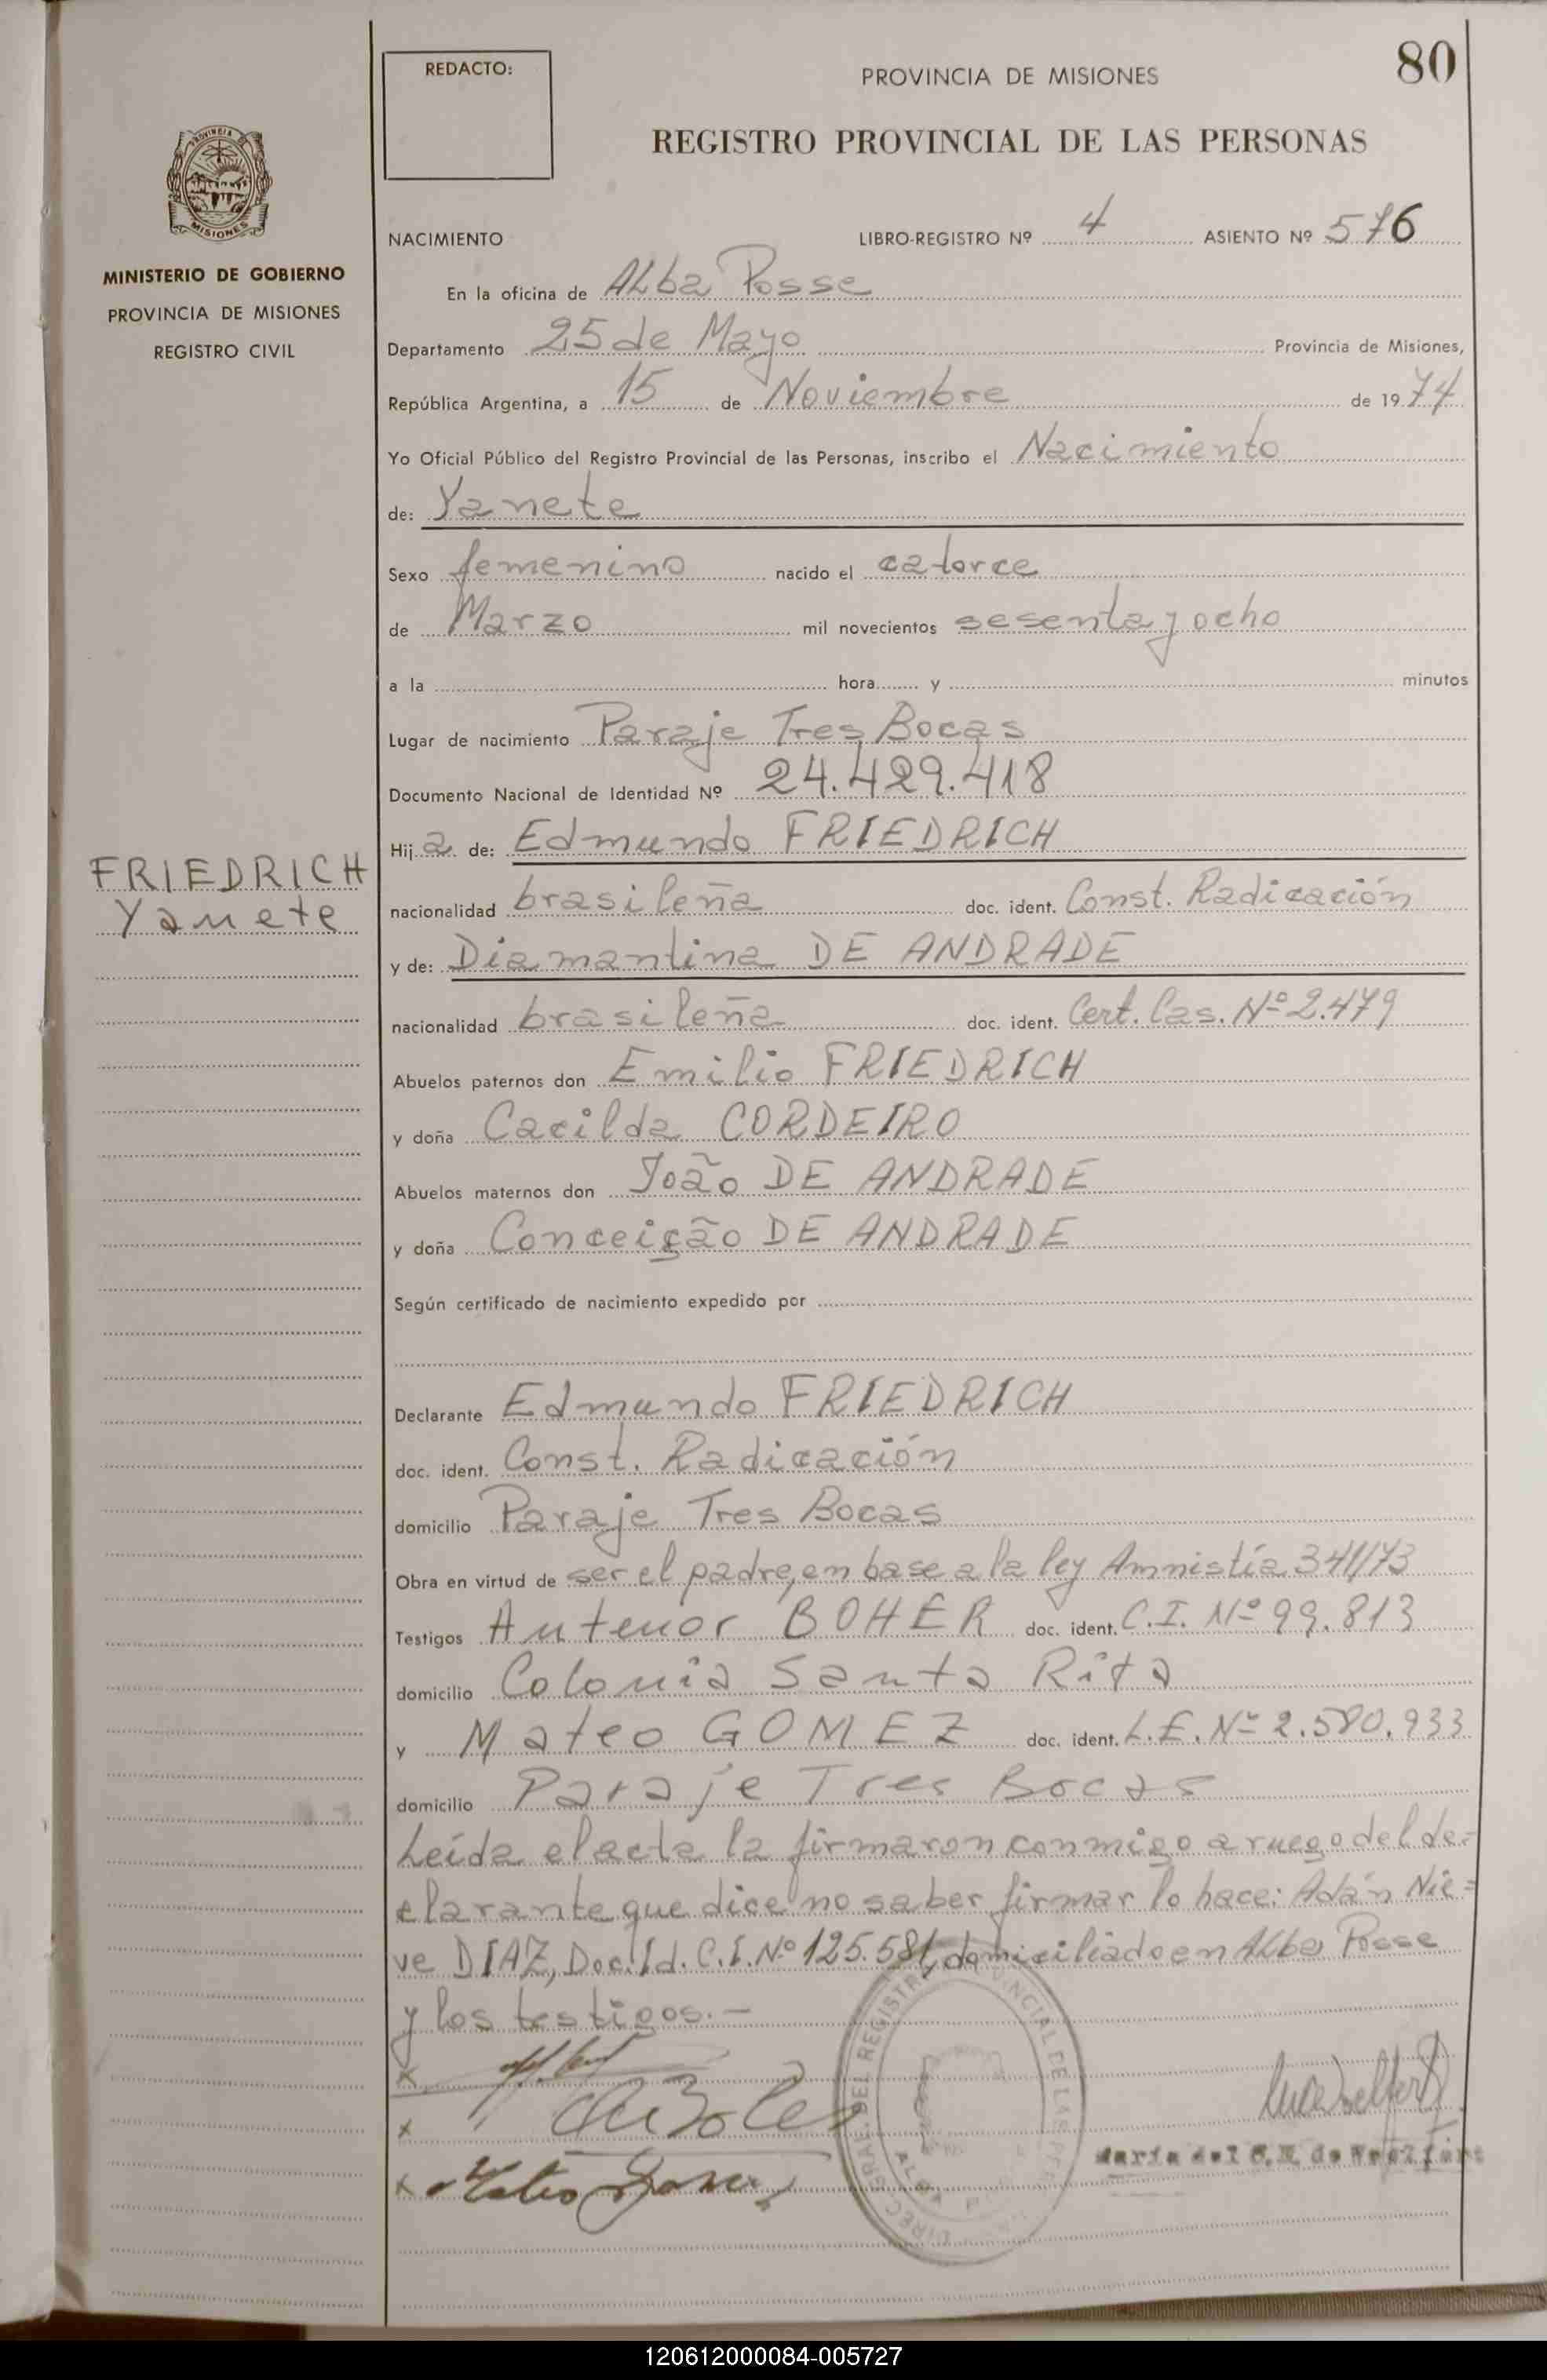 80
REDACTO:
PROVINCIA DE MISIONES
REGISTRO PROVINCIAL DE LAS PERSONAS
PROVINCIA
MISIONES
MINISTERIO DE GOBIERNO
PROVINCIA DE MISIONES
REGISTRO CIVIL
FRIEDRICH
Yanete
NACIMIENTO LIBRO-REGISTRO Nº 4 ASIENTO Nº 576
En la oficina de Alba Posse
Departamento 25 de Mayo Provincia de Misiones,
República Argentina, a 15 de Noviembre de 1974
Yo Oficial Público del Registro Provincial de las Personas, inscribo el Nacimiento
de: Yanete
Sexo femenino nacido el catorce
de Marzo mil novecientos sesenta y ocho
a la hora y minutos
Lugar de nacimiento Paraje Tres Bocas
Documento Nacional de Identidad Nº 24.429.418
Hija de: Edmundo FRIEDRICH
nacionalidad brasileña doc. ident. Const. Radicación
y de: Diamantina DE ANDRADE
nacionalidad brasileña doc. ident. Cert. Cas. Nº 2.479
Abuelos paternos don Emilio FRIEDRICH
y doña Cacilda CORDEIRO
Abuelos maternos don João DE ANDRADE
y doña Conceição DE ANDRADE
Según certificado de nacimiento expedido por
Declarante Edmundo FRIEDRICH
doc. ident. Const. Radicación
domicilio Paraje Tres Bocas
Obra en virtud de ser el padre, en base a la ley Amnistía 341/73
Testigos Antenor BOHER doc. ident. C.I. Nº 99.813
domicilio Colonia Santa Rita
y Mateo GOMEZ doc. ident. L.E. Nº 2.580.933
domicilio Paraje Tres Bocas
Leída el acta la firmaron conmigo a ruego del de=
clarante que dice no saber firmar lo hace: Adán Nie=
ve DIAZ, Doc. Id. C.I. Nº 125.581, domiciliado en Alba Posse
y los testigos.-
x
x
x Mateo Gomez
María del C.
120612000084-005727